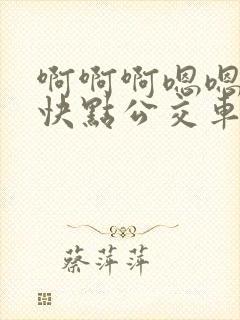 啊啊啊嗯嗯
快點公交車
蔡萍萍